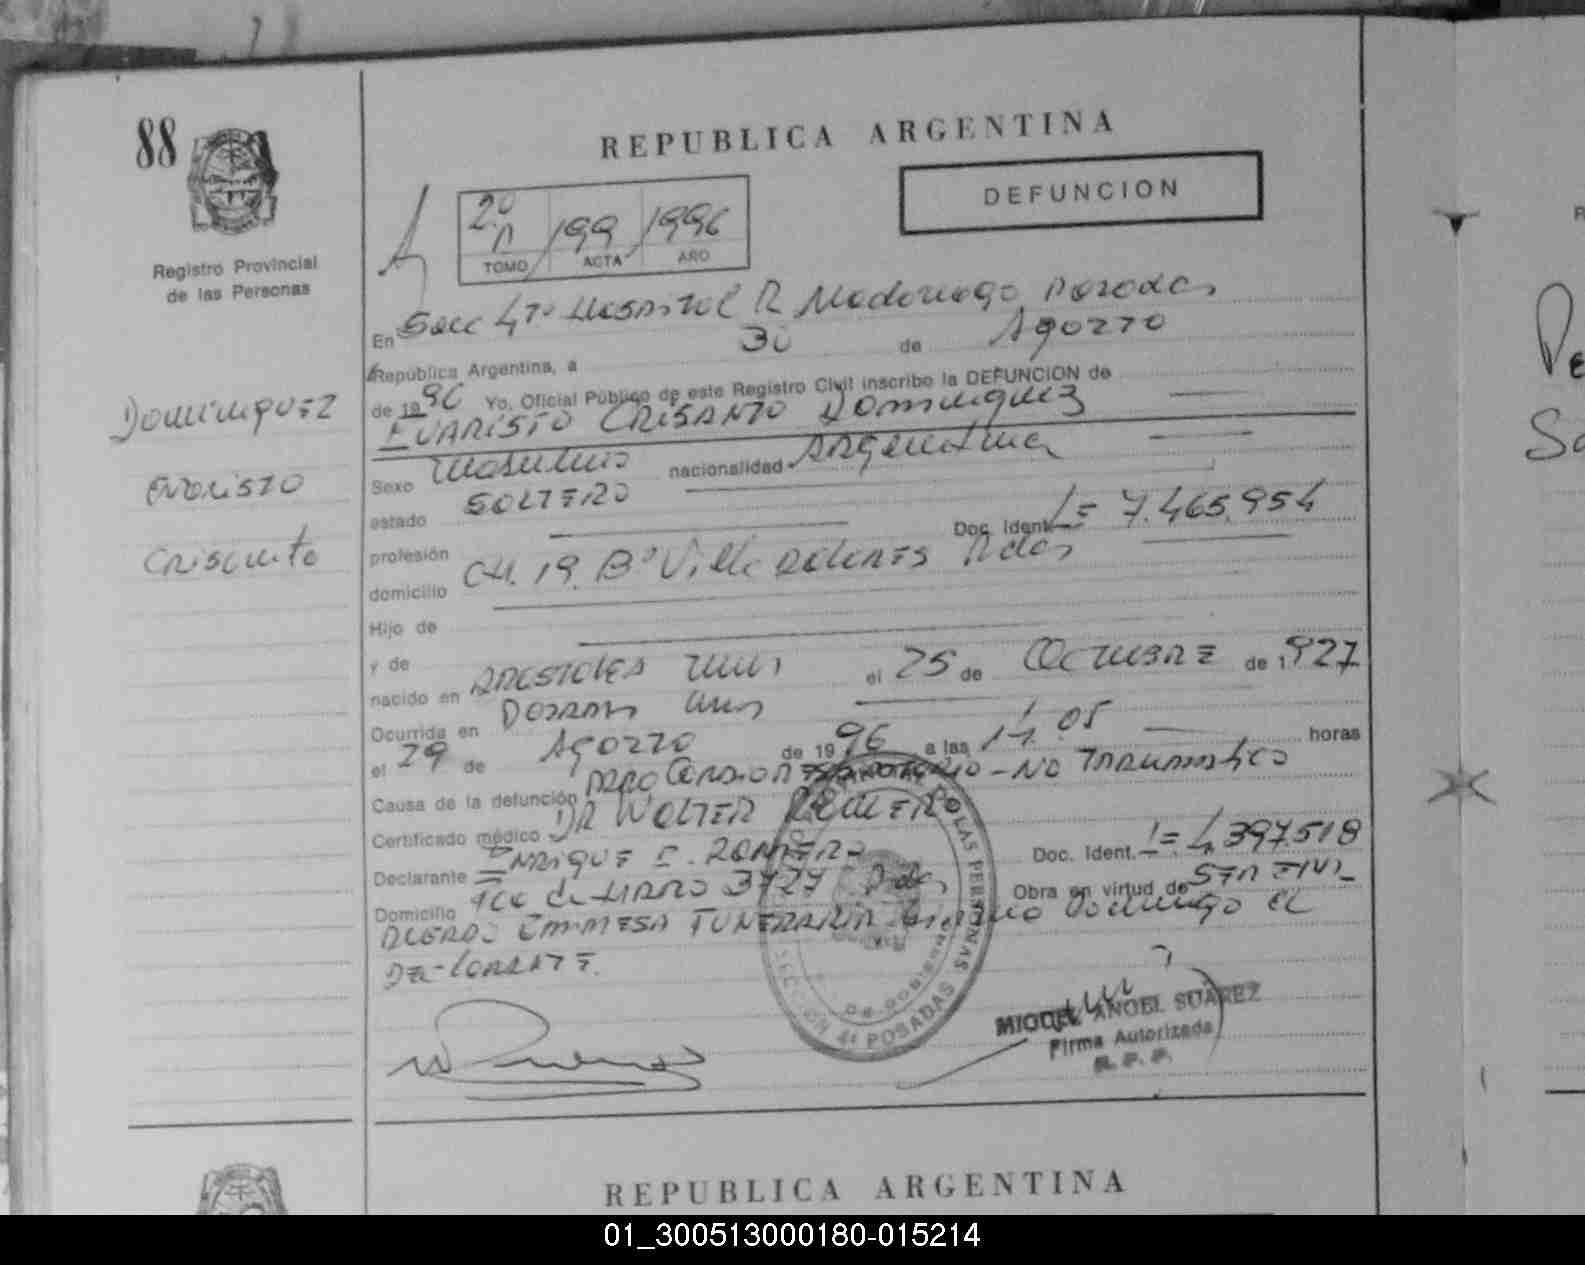 88
REPUBLICA ARGENTINA
DEFUNCION
2º 199 1996
TOMO ACTA AÑO
Registro Provincial
de las Personas
Dominguez
Evaristo
Crisanto
En Secc 4ta Hospital R Madariaga Posadas
República Argentina, a 30 de Agosto
de 1996 Yo, Oficial Público de este Registro Civil inscribo la DEFUNCION de
EVARISTO CRISANTO DOMINGUEZ
Sexo masculino nacionalidad Argentina
estado SOLTERO
profesión Doc. Ident. 7.465.954
domicilio CH. 19. Bº Villa DOLORES Pdas
Hijo de
y de
nacido en APOSTOLES mnes el 25 de OCTUBRE de 1927
Ocurrida en Posadas mnes
el 29 de Agosto de 1996 a las 11:05 horas
Causa de la defunción PARO CARDIORESPIRATORIO - NO TRAUMATICO
Certificado médico DR WALTER
Declarante ENRIQUE Doc. Ident. 4.397.518
Domicilio 3727 Pdas Obra en virtud de
EMPRESA FUNERARIA Domingo
SECCION 4ª POSADAS
DE LAS PERSONAS
MIGUEL ANGEL SUAREZ
Firma Autorizada
R. P. P.
REPUBLICA ARGENTINA
01_300513000180-015214